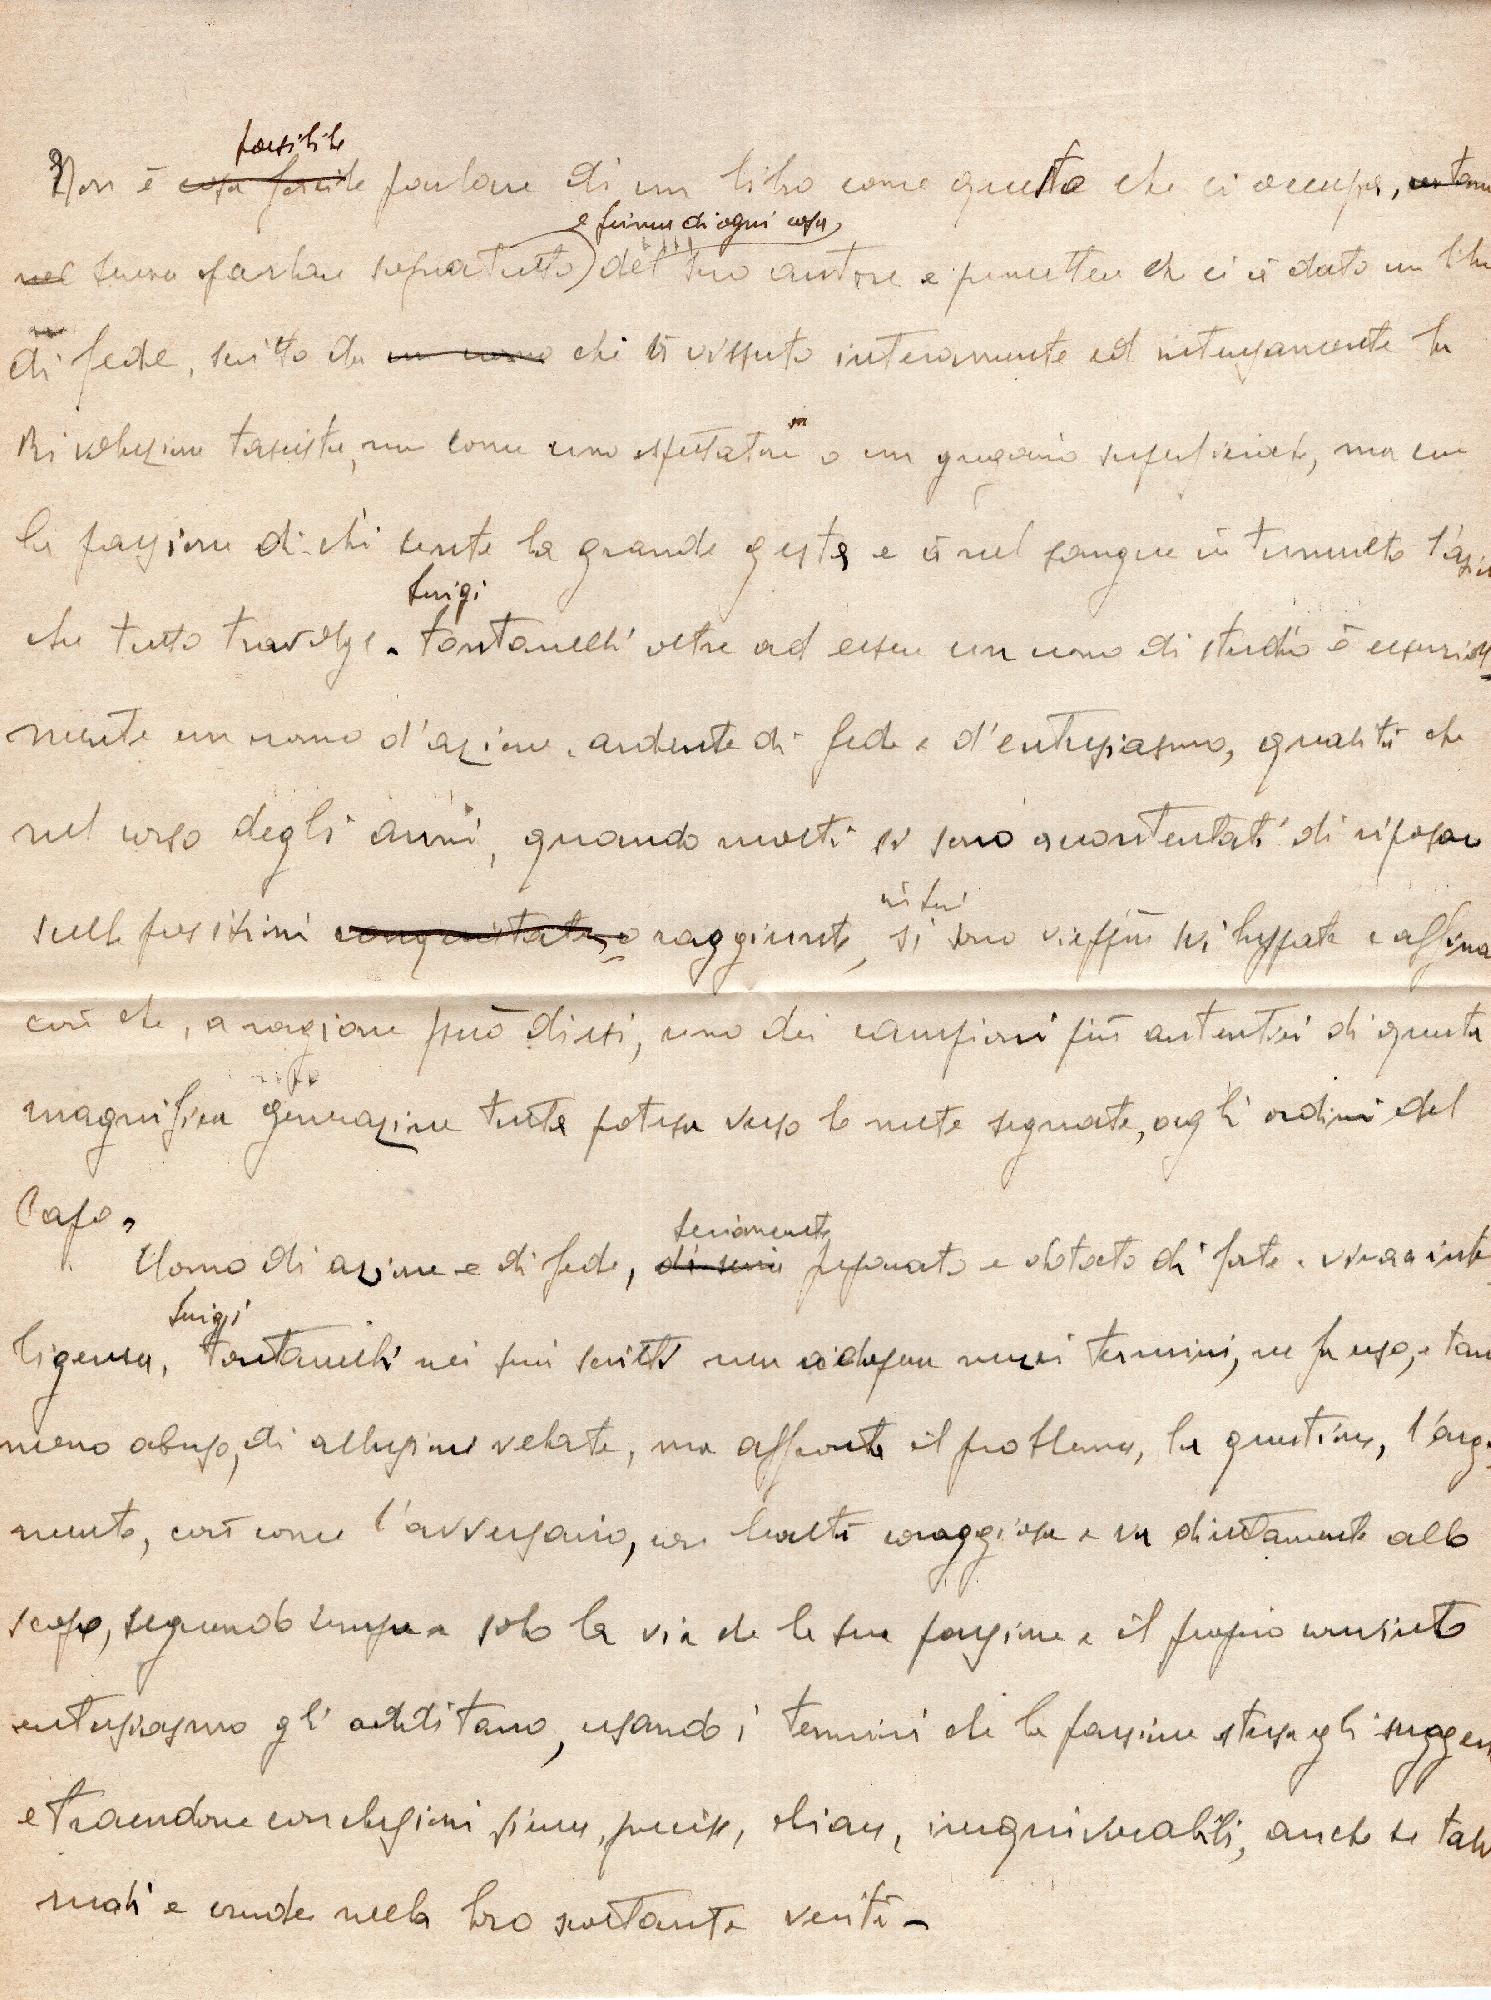 possibile
Non è cosa facile parlare di un libro come questo che ci occupa,
e prima di ogni cosa
senza parlare sopratutto) del suo autore e premettere che ci à dato un libro
di fede, scritto da un uomo che à vissuto interamente ed intensamente la
Rivoluzione fascista, non come uno spettatore o un gregario superficiale, ma con
la passione di chi sente la grande gesta e à nel sangue in tumulto l'azione
Luigi
che tutto travolge. Fontanelli oltre ad essere un uomo di studio è essenzial-
mente un uomo d'azione, ardente di fede e d'entusiasmo, qualità che
nel corso degli anni, quando molti si sono accontentati di riposare
in lui
sulle posizioni conquistate o raggiunte, si sono vieppiù sviluppate e affinate
così che, a ragione può dirsi, uno dei campioni più autentici di questa
magnifica generazione tutta protesa verso le mete segnate, agli ordini del
Capo.
seriamente
Uomo di azione e di fede, di seria preparato e dotato di forte e vivace intel-
Luigi
ligenza, Fontanelli nei suoi scritti non adopera mezzi termini, ne fa uso, e tanto
meno abuso, di allusioni velate, ma affronta il problema, la questione, l'argo-
mento, così come l'avversario, con lealtà coraggiosa e va direttamente allo
scopo, seguendo sempre e solo la via che la sua passione e il proprio convinto
entusiasmo gli additano, usando i termini che la passione stessa gli suggerisce
e traendone conclusioni sicure, precise, chiare, inequivocabili, anche se talvolta
reali e crude nella loro scottante verità.